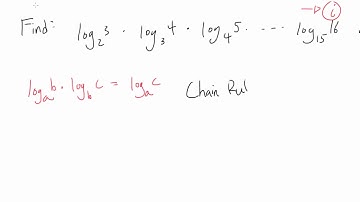 Find: log₂3 · log₃4 · log₄5 · ··· log₁₅16
→ i
logₐb · log_b c = logₐc Chain Rul